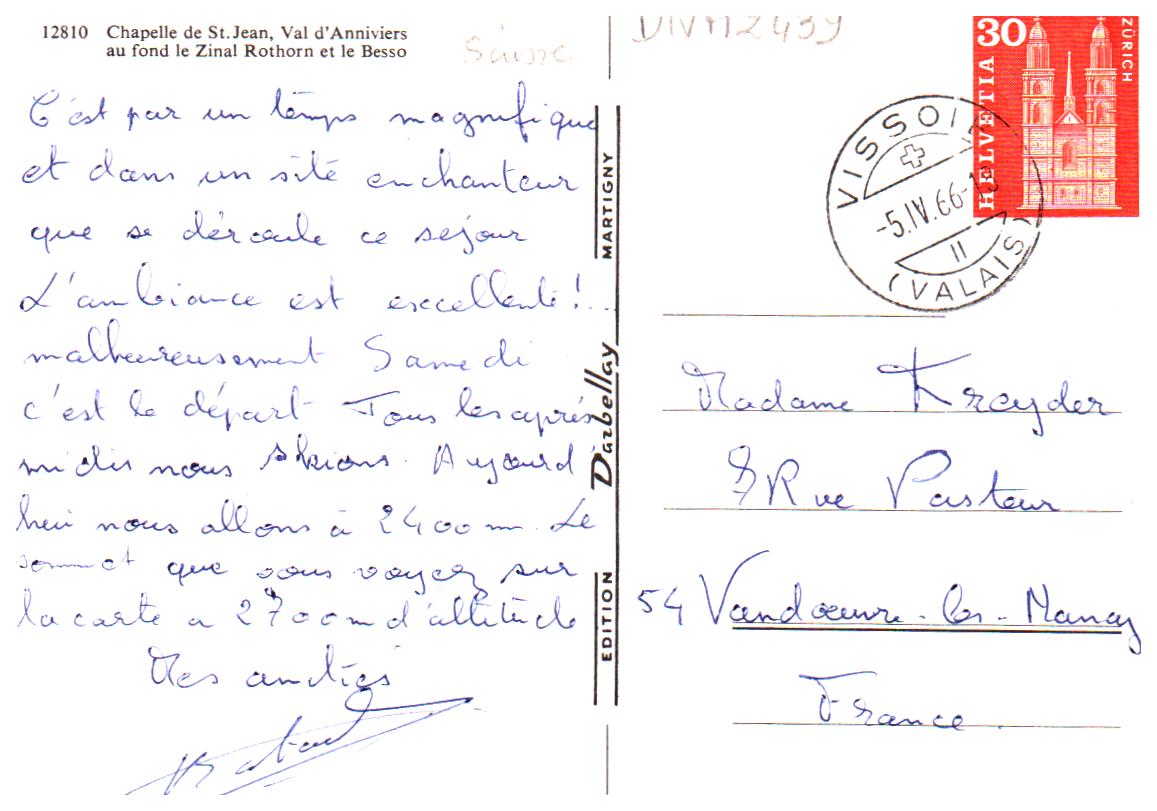 12810 Chapelle de St. Jean, Val d'Anniviers
au fond le Zinal Rothorn et le Besso
Suisse
C'est par un temps magnifique
et dans un site enchanteur
que se déroule ce séjour
L'ambiance est excellente!...
malheureusement Samedi
c'est le départ Tous les après
midis nous skions. Aujourd'
hui nous allons à 2400 m. Le
sommet que vous voyez sur
la carte a 2700 m d'altitude
Mes amitiés
EDITION Darbellay MARTIGNY
30
HELVETIA
ZÜRICH
VISSOIE
-5.IV.66-
II
(VALAIS)
Madame Krayder
Rue Pasteur
54 Vandœuvre-les-Nancy
France